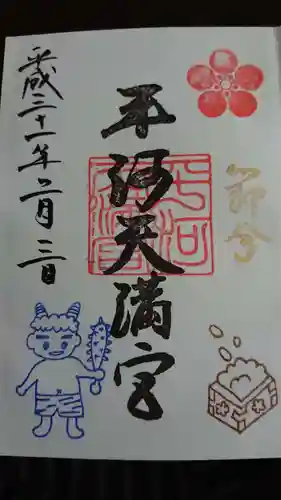 節分
平河天満宮
平成三十一年二月三日